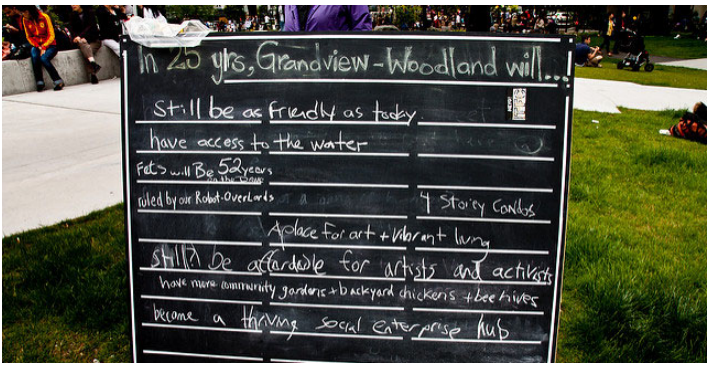 In 25 yrs, Grandview-Woodland will...
Still be as friendly as today
have access to the water
Fets will Be 52 years
on the Drive
ruled by our Robot-OverLords
4 Storey Condos
A place for art + vibrant living
still? be affordable for artists and activists
have more community gardens + backyard chickens + bee hives
become a thriving social enterprise hub